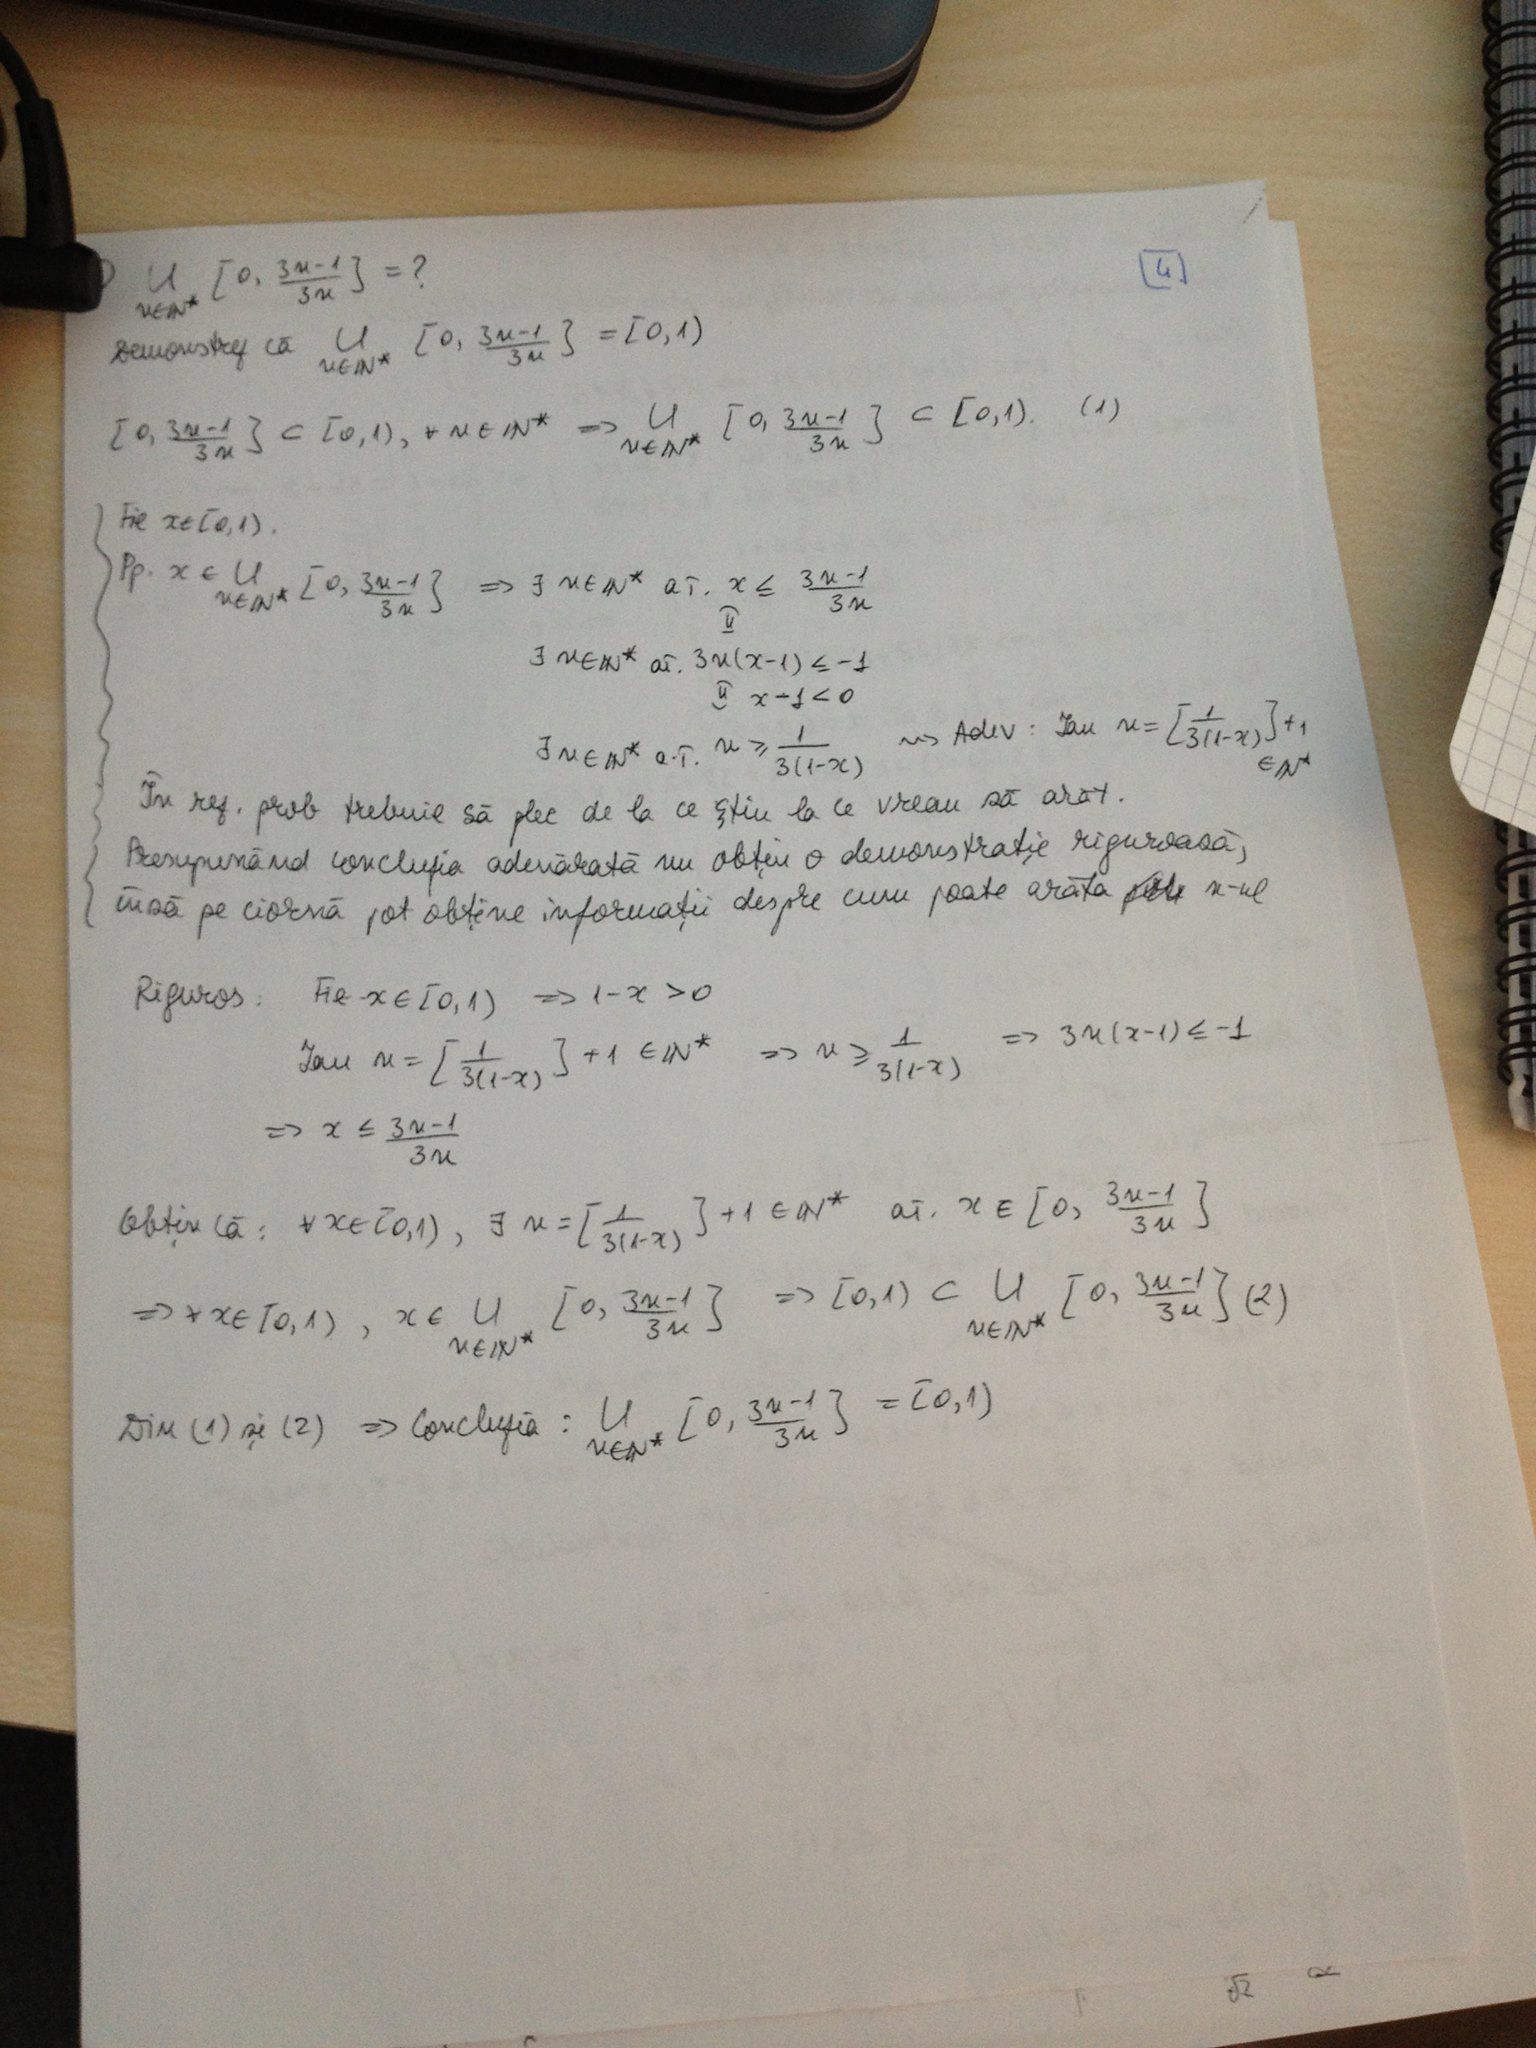 ⋃ n∈ℕ* [0, (3n-1)/(3n)] = ?
[4]
Demonstrez că ⋃ n∈ℕ* [0, (3n-1)/(3n)] = [0,1)
[0, (3n-1)/(3n)] ⊂ [0,1), ∀ n∈ℕ* => ⋃ n∈ℕ* [0, (3n-1)/(3n)] ⊂ [0,1). (1)
Fie x∈[0,1).
Pp. x ∈ ⋃ n∈ℕ* [0, (3n-1)/(3n)] => ∃ n∈ℕ* aî. x ≤ (3n-1)/(3n)
⇕
∃ n∈ℕ* aî. 3n(x-1) ≤ -1
⇕ x-1<0
∃ n∈ℕ* a.î. n ≥ 1/(3(1-x)) ⇝ Adev: Iau n = [1/(3(1-x))]+1 ∈ℕ*
În rez. prob trebuie să plec de la ce știu la ce vreau să arăt.
Presupunând concluzia adevărată nu obțin o demonstrație riguroasă,
însă pe ciornă pot obține informații despre cum poate arăta n-ul
Riguros: Fie x∈[0,1) => 1-x >0
Iau n = [1/(3(1-x))] +1 ∈ℕ* => n ≥ 1/(3(1-x)) => 3n(x-1) ≤ -1
=> x ≤ (3n-1)/(3n)
Obțin că: ∀ x∈[0,1), ∃ n = [1/(3(1-x))] +1 ∈ℕ* aî. x ∈ [0, (3n-1)/(3n)]
=> ∀ x∈[0,1), x ∈ ⋃ n∈ℕ* [0, (3n-1)/(3n)] => [0,1) ⊂ ⋃ n∈ℕ* [0, (3n-1)/(3n)] (2)
Din (1) și (2) => Concluzia: ⋃ n∈ℕ* [0, (3n-1)/(3n)] = [0,1)
√2